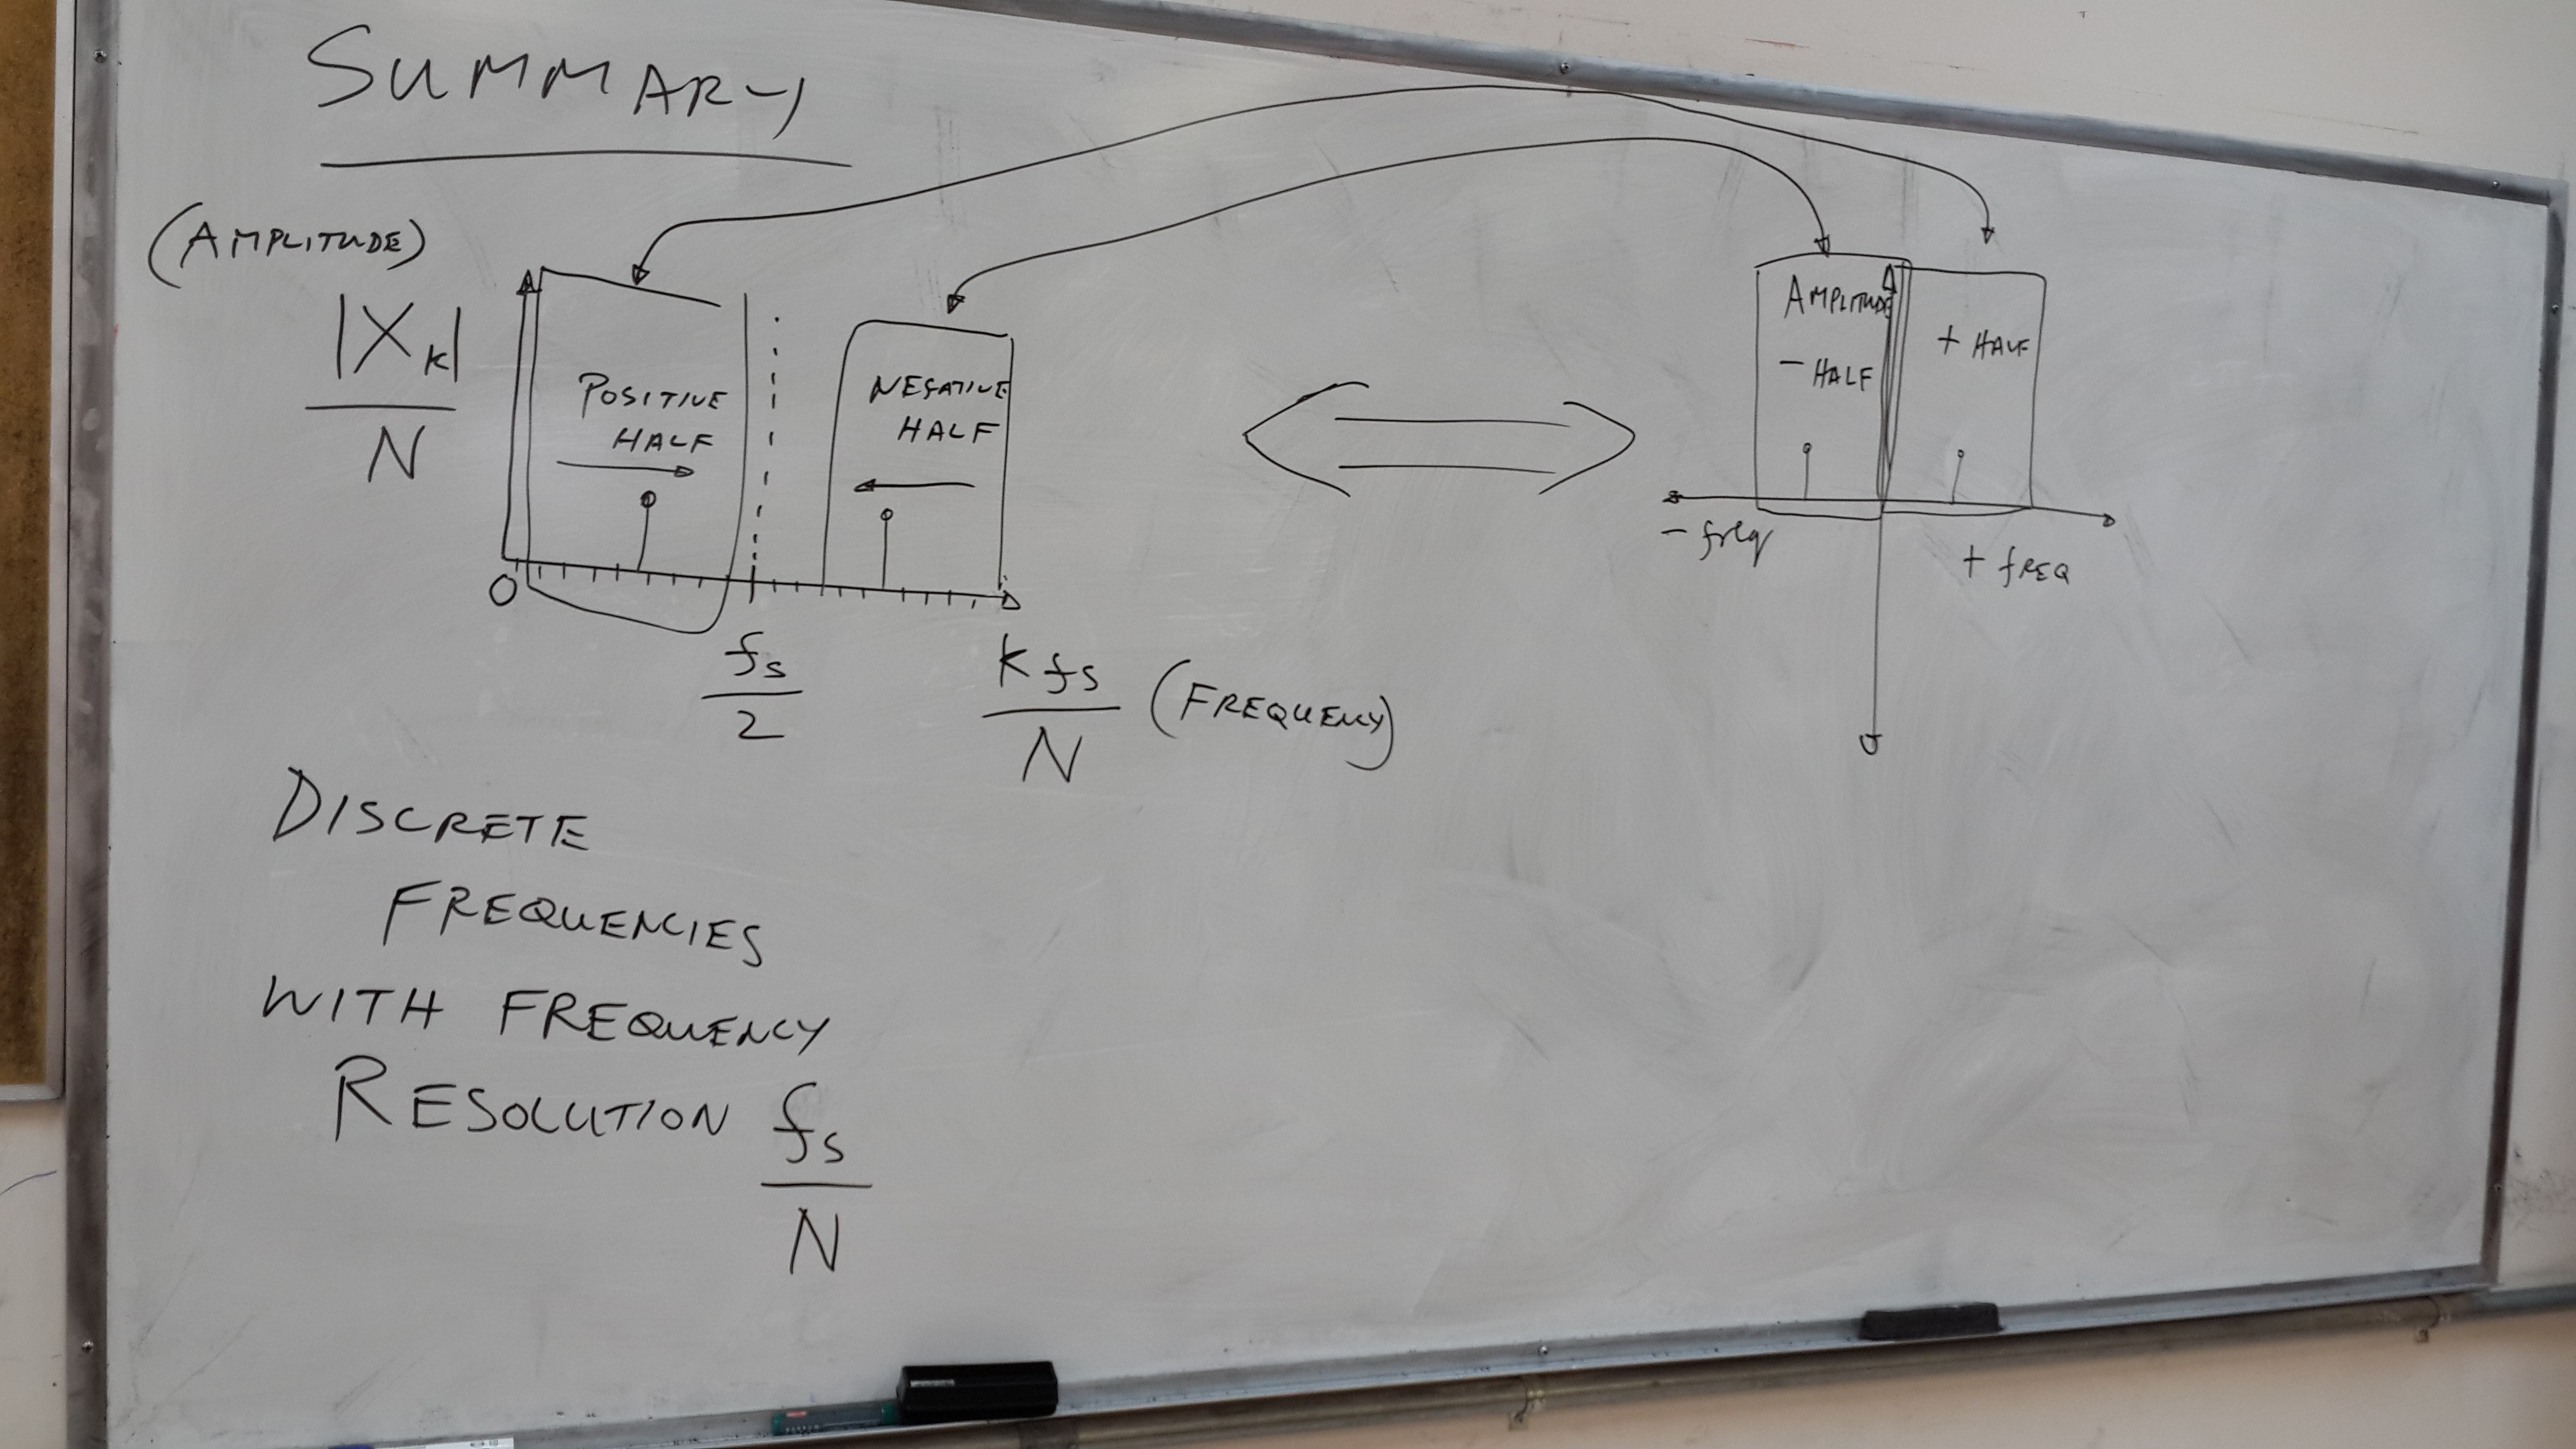 SUMMARY
(AMPLITUDE)
|Xk|
N
POSITIVE
HALF
NEGATIVE
HALF
0
fs
2
k fs
N
(FREQUENY)
AMPLITUDE
- HALF
+ HALF
- freq
+ fREQ
DISCRETE
FREQUENCIES
WITH FREQUENCY
RESOLUTION fs
N